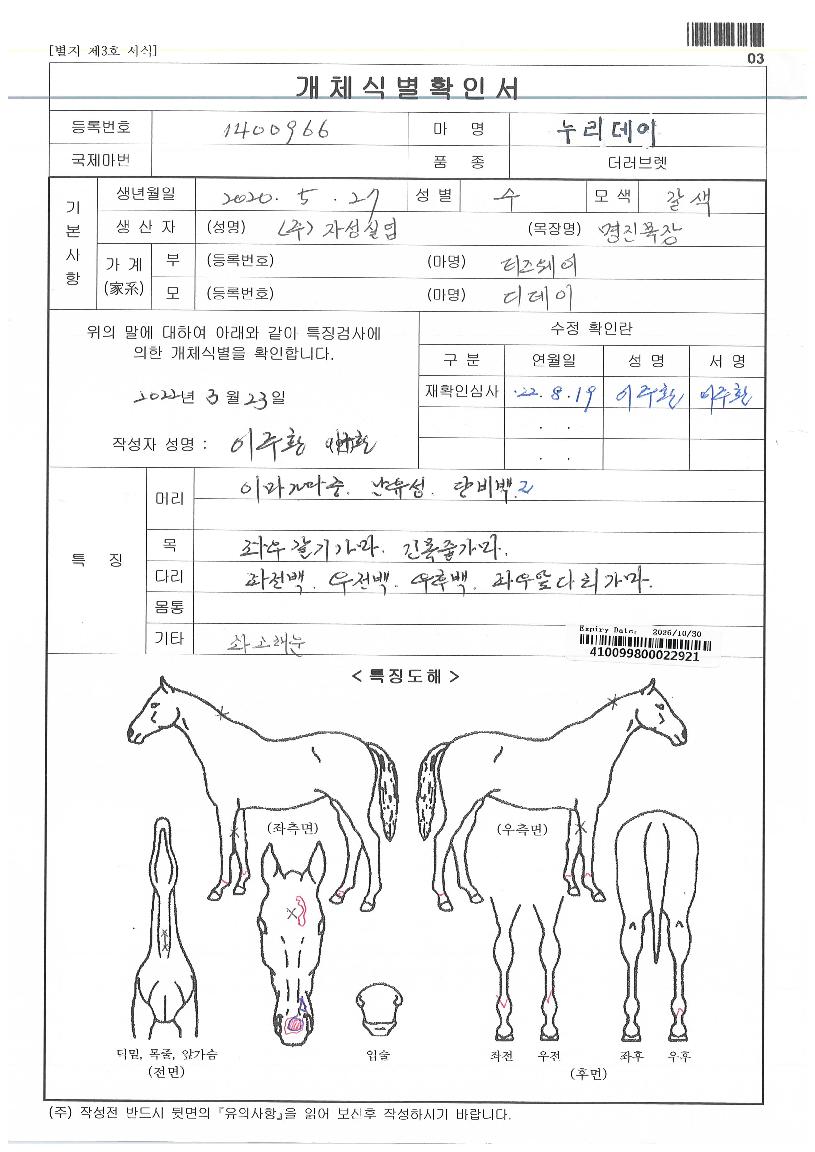 [별지 제3호 서식]
03
개체식별확인서
등록번호 1400966 마 명 누리데이
국제마번 품 종 더러브렛
기본사항
생년월일 2020. 5. 27 성별 수 모색 갈색
생 산 자 (성명) (주)자성실업 (목장명) 명진목장
가 계 (家系) 부 (등록번호) (마명) 티즈웨이
모 (등록번호) (마명) 디데이
위의 말에 대하여 아래와 같이 특징검사에
의한 개체식별을 확인합니다.
2022년 3월 23일
작성자 성명 : 이주환
수정 확인란
구 분 연월일 성 명 서 명
재확인심사 '22. 8. 19 이주환 이주환
. .
. .
특 징
머리 이마가마중. 난유성. 단비백.
목 좌우갈기가마. 긴목줄가마.
다리 좌전백. 우전백. 우후백. 좌우앞다리가마.
몸통
기타
Expiry Date: 2026/10/30
410099800022921
< 특징도해 >
(좌측면) (우측면)
턱밑, 목줄, 앞가슴
(전면)
입술
좌전 우전 좌후 우후
(후면)
(주) 작성전 반드시 뒷면의 『유의사항』을 읽어 보신후 작성하시기 바랍니다.